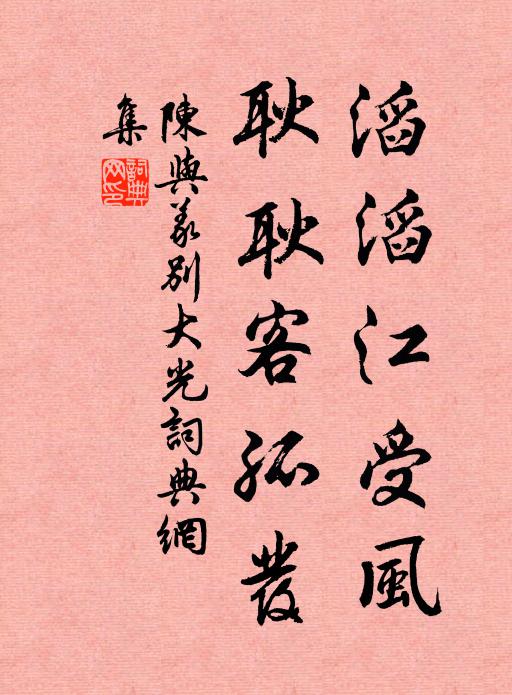 滔滔江受風
耿耿客孤發
陳與義別大光詞典網
集
詞典
网印